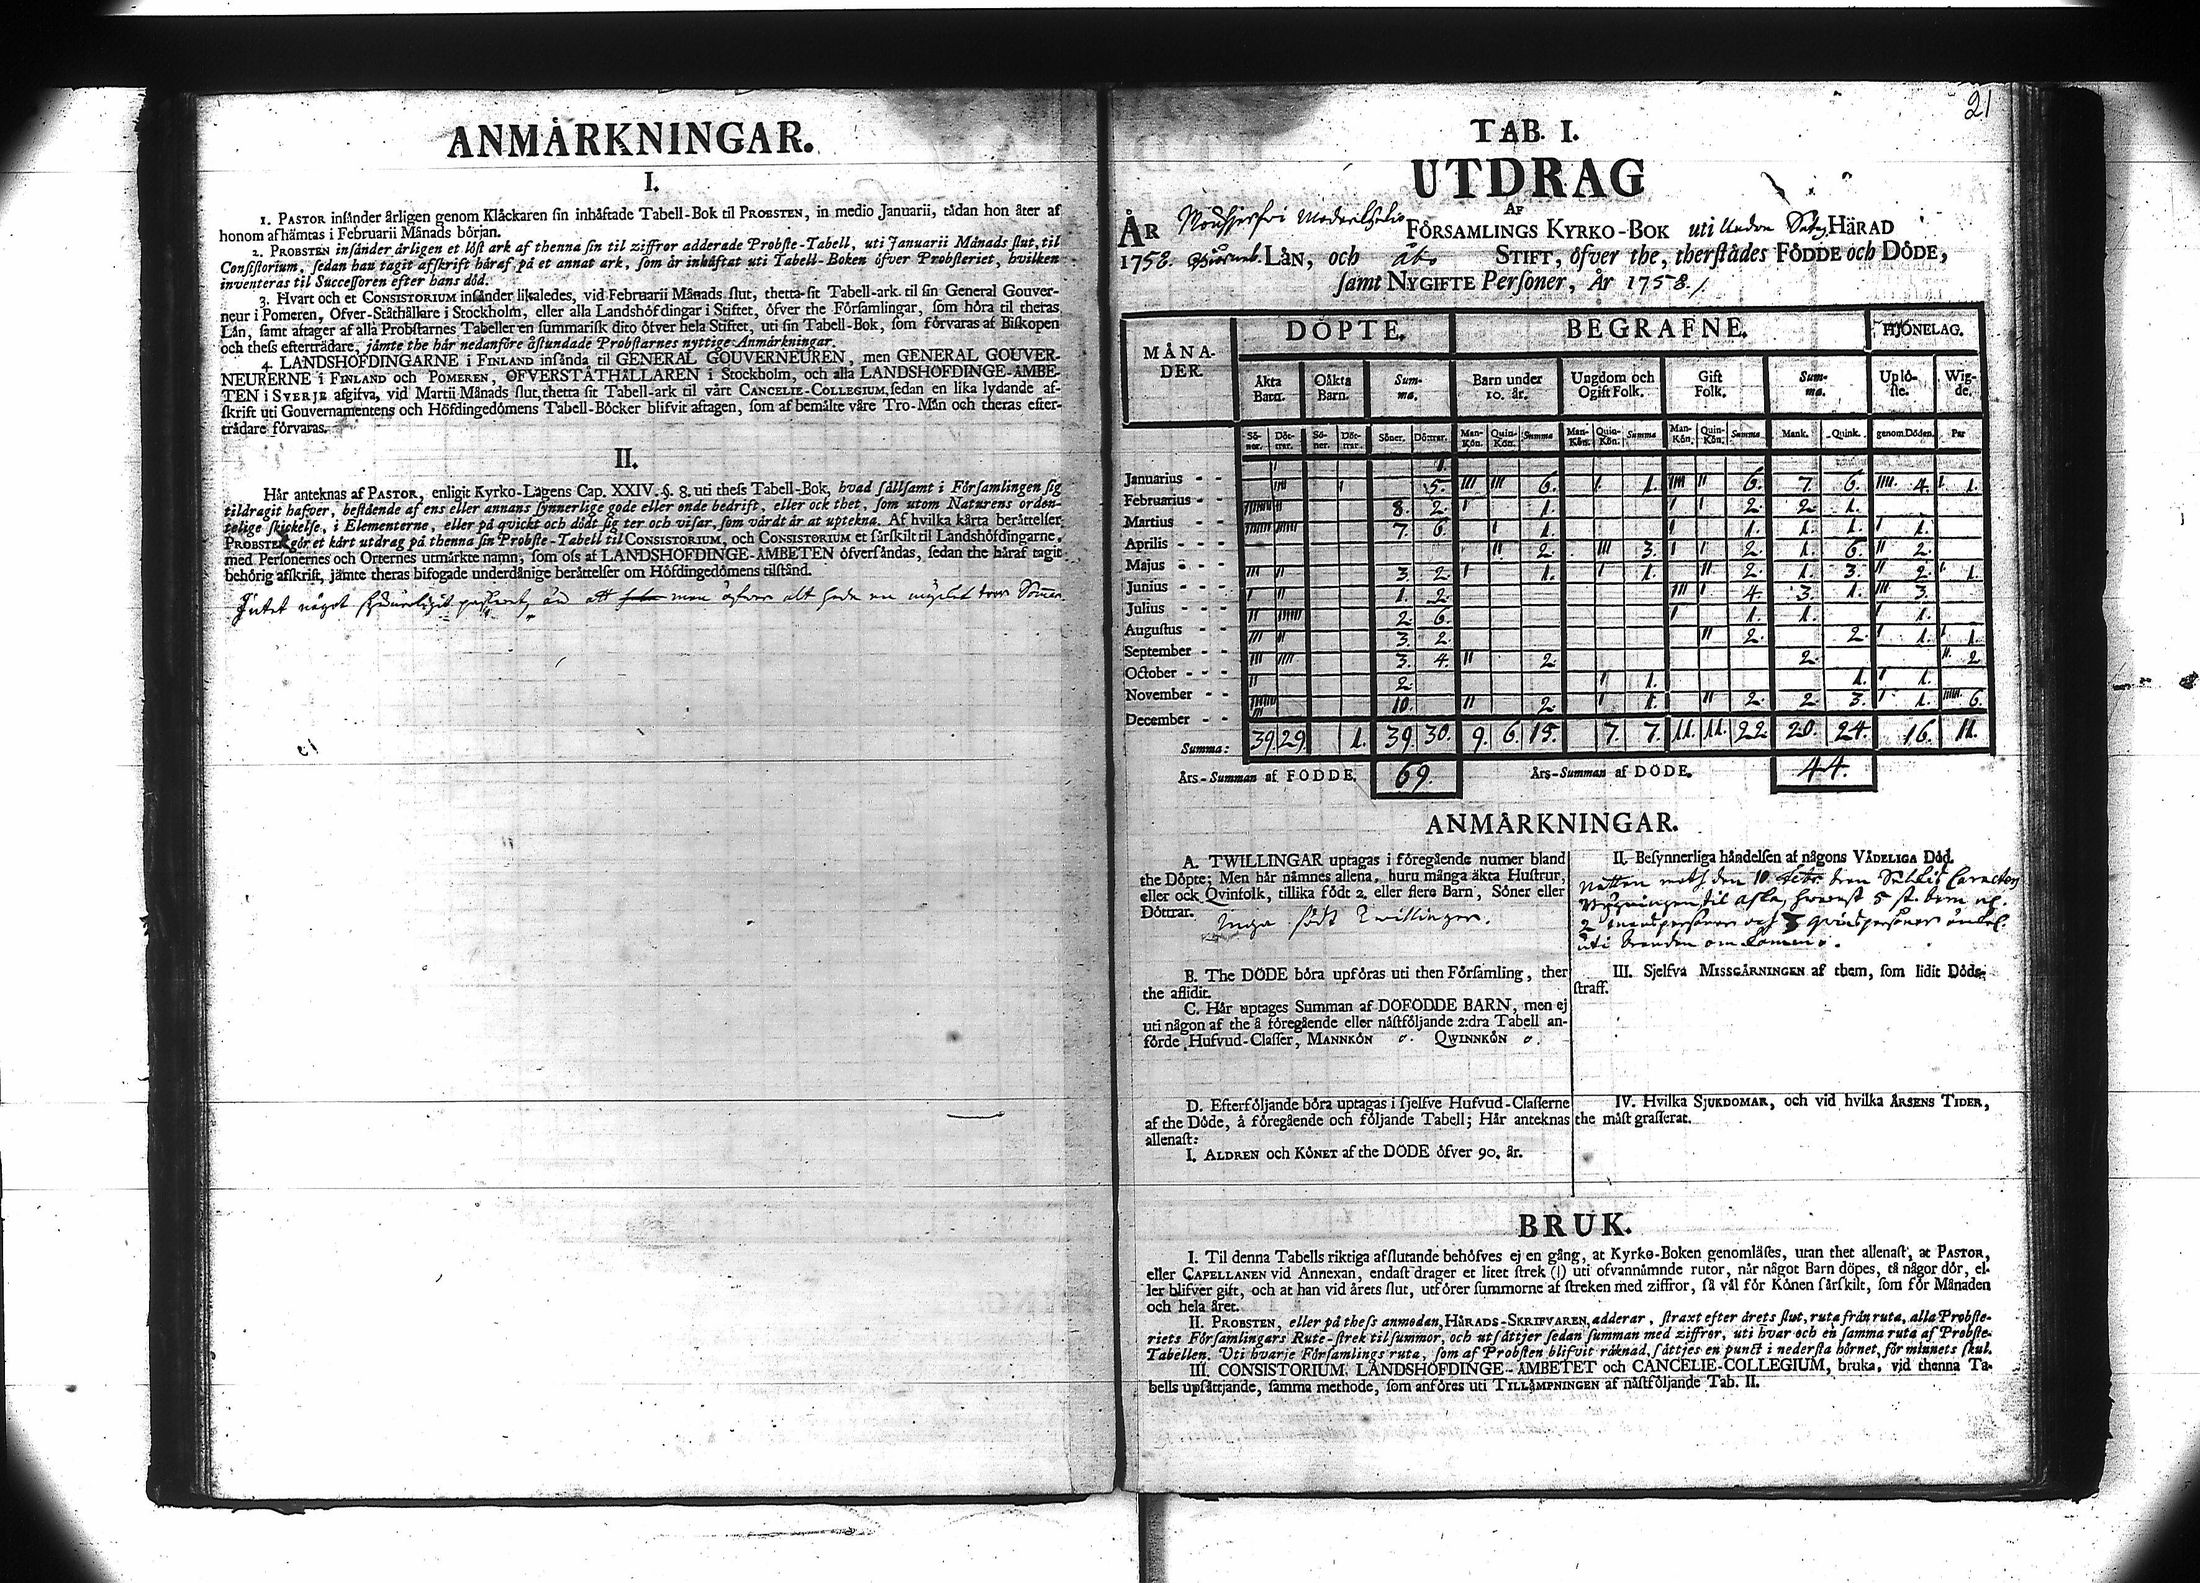 ANMÄRKNINGAR.
I.
1. PASTOR insänder årligen genom Klåckaren sin inhäftade Tabell-Bok til PROBSTEN, in medio Januarii, tådan hon åter af
honom afhämtas i Februarii Månads början.
2. PROBSTEN insänder årligen et löst ark af thenna sin til ziffror adderade Probste-Tabell, uti Januarii Månads slut, til
Consistorium, sedan han tagit afskrift häraf på et annat ark, som är inhäftat uti Tabell-Boken öfver Probsteriet, hvilken
inventeras til Successoren efter hans död.
3. Hvart och et CONSISTORIUM insänder likaledes, vid Februarii Månads slut, thetta sit Tabell-ark til sin General Gouver-
neur i Pomeren, Öfver-Ståthållare i Stockholm, eller alla Landshöfdingar i Stiftet, öfver the Församlingar, som höra til theras
Län, samt aftager af alla Probstarnes Tabeller en summarisk dito öfver hela Stiftet, uti sin Tabell-Bok, som förvaras af Biskopen
och thess efterträdare, jämte the här nedanföre åstundade Probstarnes nyttige Anmärkningar.
4. LANDSHÖFDINGARNE i FINLAND insända til GENERAL GOUVERNEUREN, men GENERAL GOUVER-
NEURERNE i FINLAND och POMEREN, ÖFVERSTÅTHÅLLAREN i Stockholm, och alla LANDSHÖFDINGE-ÄMBE-
TEN i SVERJE afgifva, vid Martii Månads slut, thetta sit Tabell-ark til vårt CANCELIE-COLLEGIUM, sedan en lika lydande af-
skrift uti Gouvernamentens och Höfdingedömens Tabell-Böcker blifvit aftagen, som af bemälte våre Tro-Män och theras efter-
trädare förvaras.
II.
Här anteknas af PASTOR, enligit Kyrko-Lagens Cap. XXIV. §. 8. uti thess Tabell-Bok, hvad sällsamt i Församlingen sig
tildragit hafver, bestående af ens eller annans synnerlige gode eller onde bedrift, eller ock thet, som utom Naturens orden-
telige skickelse, i Elementerne, eller på qvickt och dödt sig ter och visar, som värdt är at uptekna. Af hvilka kärta berättelser
PROBSTEN gör et kårt utdrag på thenna sin Probste-Tabell til CONSISTORIUM, och CONSISTORIUM et särskilt til Landshöfdingarne,
med Personernes och Orternes utmärkte namn, som oss af LANDSHÖFDINGE-ÄMBETEN öfversändas, sedan the häraf tagit
behörig afskrift, jämte theras bifogade underdånige berättelser om Höfdingedömens tilstånd.
Intet något än att man öfver alt hade en Somar.
21
TAB. I.
UTDRAG
AF
ÅR FÖRSAMLINGS KYRKO-BOK uti HÄRAD
1758. LÄN, och Åbo STIFT, öfver the, therstädes FÖDDE och DÖDE,
samt NYGIFTE Personer, År 1758.
MÅNA- DÖPTE. BEGRAFNE. HJONELAG.
DER. Äkta Oäkta Sum- Barn under Ungdom och Gift Sum- Uplö- Wig-
Barn. Barn. ma. 10. år. Ogift Folk. Folk. ma. ste. de.
Sö- Döt- Sö- Döt- Söner. Döttrar. Man- Quin- Summa Man- Quin- Summa Man- Quin- Summa Mank. Quink. genom Döden. Par
ner. trar. ner. trar. Kön. Kön. Kön. Kön. Kön. Kön.
1.
Januarius - - 5. 6. 1. 6. 7. 6. 4. 1.
Februarius - - 8. 2. 1. 2. 2. 1.
Martius - - 7. 6. 1. 1. 1. 1. 1.
Aprilis - - 2. 3. 2. 1. 6. 2.
Majus - - 3. 2. 1. 1. 2. 1. 3. 2. 1.
Junius - - 1. 2. 4. 3. 1. 3.
Julius - - 2. 6. 1. 1. 1.
Augustus - - 3. 2. 2. 2. 1. 1.
September - - 3. 4. 2. 2. 2
October - - 2. 1. 1. 1.
November - - 10. 2. 1. 2. 2. 3. 1. 6.
December - -
Summa: 39 29. 1. 39. 30. 9. 6. 15. 7. 7. 11. 11. 22 20. 24. 16. 11.
Års-Summan af FÖDDE. 69. Års-Summan af DÖDE. 44.
ANMÄRKNINGAR.
A. TWILLINGAR uptagas i föregående numer bland
the Döpte; Men här nämnes allena, huru många äkta Hustrur,
eller ock Qvinfolk, tillika födt 2. eller flere Barn, Söner eller
Döttrar.
Inga födt Twillingar.
B. The DÖDE böra upföras uti then Församling, ther
the aflidit.
C. Här uptages Summan af DÖFÖDDE BARN, men ej
uti någon af the å föregående eller nästföljande 2:dra Tabell an-
förde Hufvud-Classer, MANNKÖN 0. QWINNKÖN 0.
D. Efterföljande böra uptagas i sjelfve Hufvud-Classerne
af the Döde, å föregående och följande Tabell; Här anteknas
allenast:
I. ÅLDREN och KÖNET af the DÖDE öfver 90. år.
II. Besynnerliga händelsen af någons VÅDELIGA Död.
Natten mot den 10
til aska, hwarest 5 st. barn
2 manspersoner och 3 qvinspersoner
uti branden omkommo.
III. Sjelfva MISSGÄRNINGEN af them, som lidit Döds-
straff.
IV. Hvilka SJUKDOMAR, och vid hvilka ÅRSENS TIDER,
the mäst grasserat.
BRUK.
I. Til denna Tabells riktiga afslutande behöfves ej en gång, at Kyrko-Boken genomläses, utan thet allenast, at PASTOR,
eller CAPELLANEN vid Annexan, endast drager et litet strek (|) uti ofvannämnde rutor, när något Barn döpes, tå någor dör, el-
ler blifver gift, och at han vid årets slut, utförer summorne af streken med ziffror, så väl för Könen särskilt, som för Månaden
och hela året.
II. PROBSTEN, eller på thess anmodan, HÄRADS-SKRIFVAREN, adderar, straxt efter årets slut, ruta från ruta, alla Probste-
riets Församlingars Rute-strek til summor, och utsättjer sedan summan med ziffror, uti hvar och en samma ruta af Probste-
Tabellen. Uti hvarje Församlings ruta, som af Probsten blifvit räknad, sättjes en punct i nedersta hörnet, för minnets skul.
III. CONSISTORIUM, LANDSHÖFDINGE-ÄMBETET och CANCELIE-COLLEGIUM, bruka, vid thenna Ta-
bells upsättjande, samma methode, som anföres uti TILLÄMPNINGEN af nästföljande Tab. II.